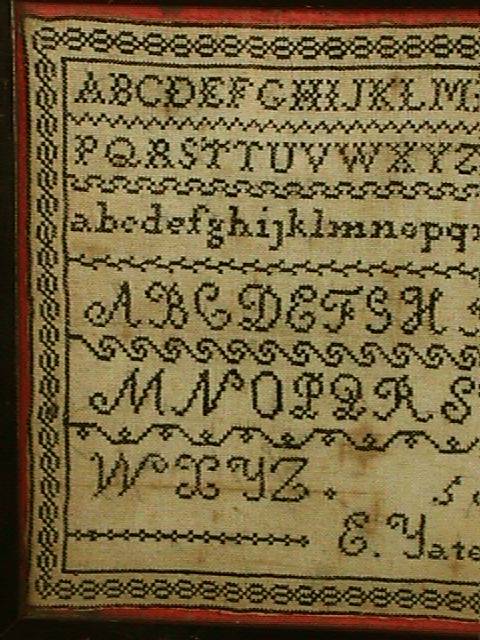 ABCDEFGHIJKLM
PQRSTTUVWXYZ
abcdefghijklmnopq
ABCDEFGH
MNOPQRS
WXYZ.
E. Yate